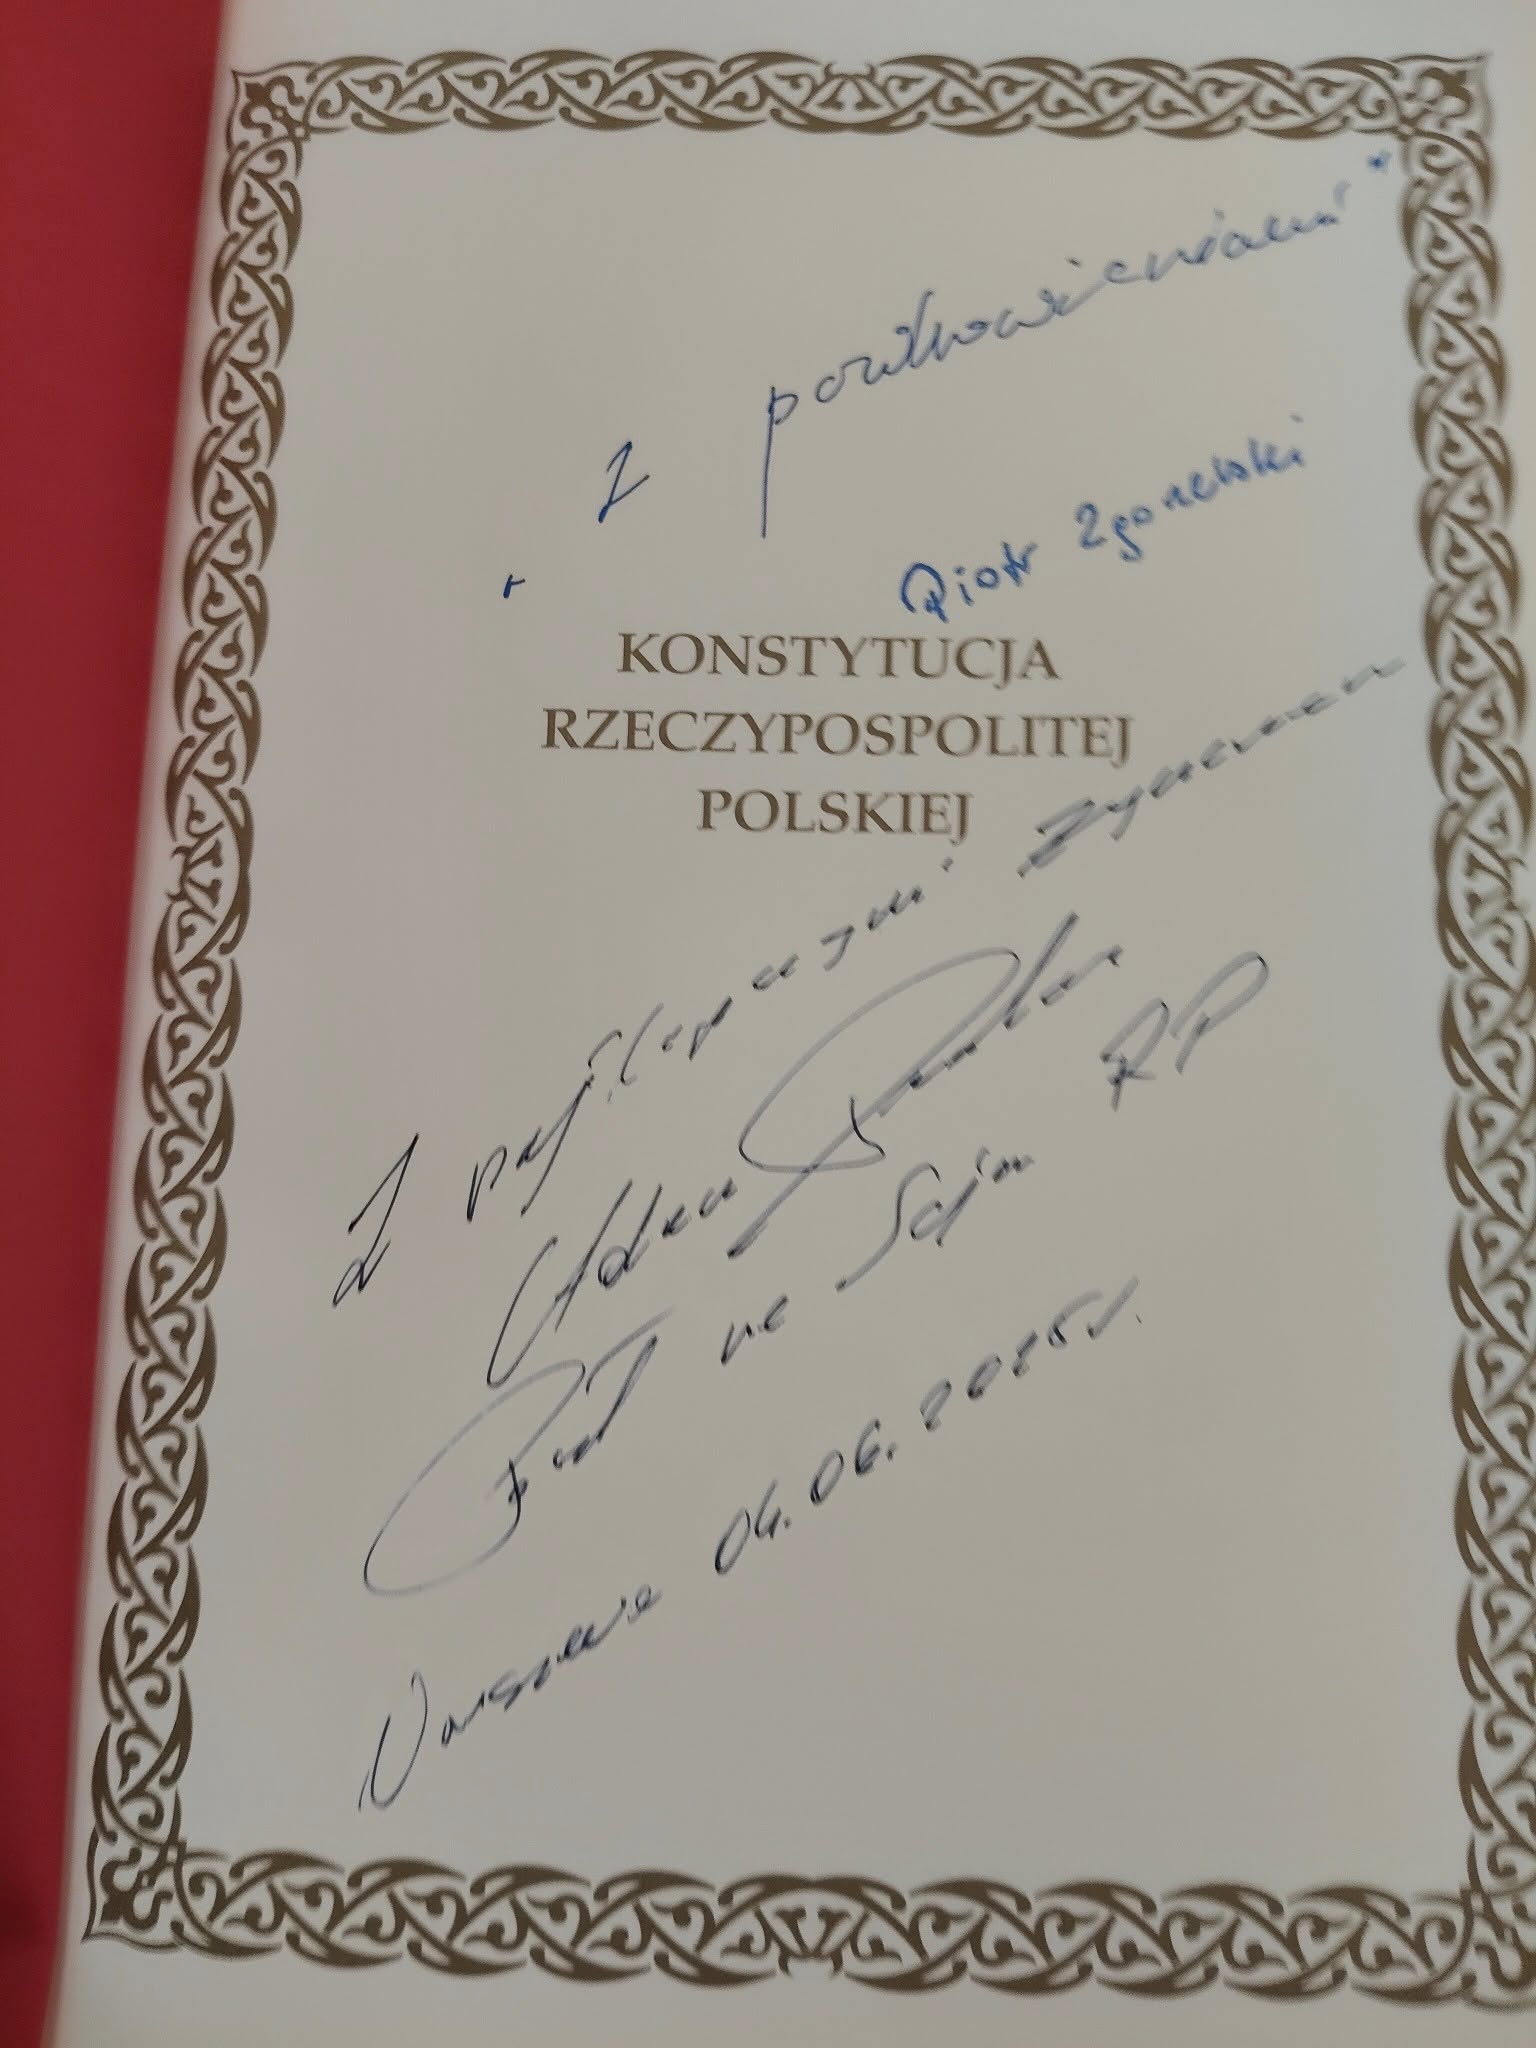 Z pozdrowieniami
Piotr Zgorzelski
KONSTYTUCJA
RZECZYPOSPOLITEJ
POLSKIEJ
Z najlepszymi życzeniami
Adam
Poseł na Sejm RP
Warszawa 04.06.2025r.